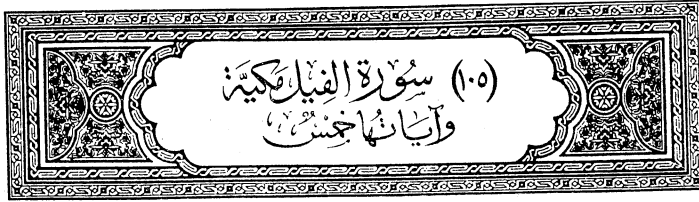 (١٠٥) سُورَة الفِيل مَكيَّة
وَآيَاتهَا خَمسٌ